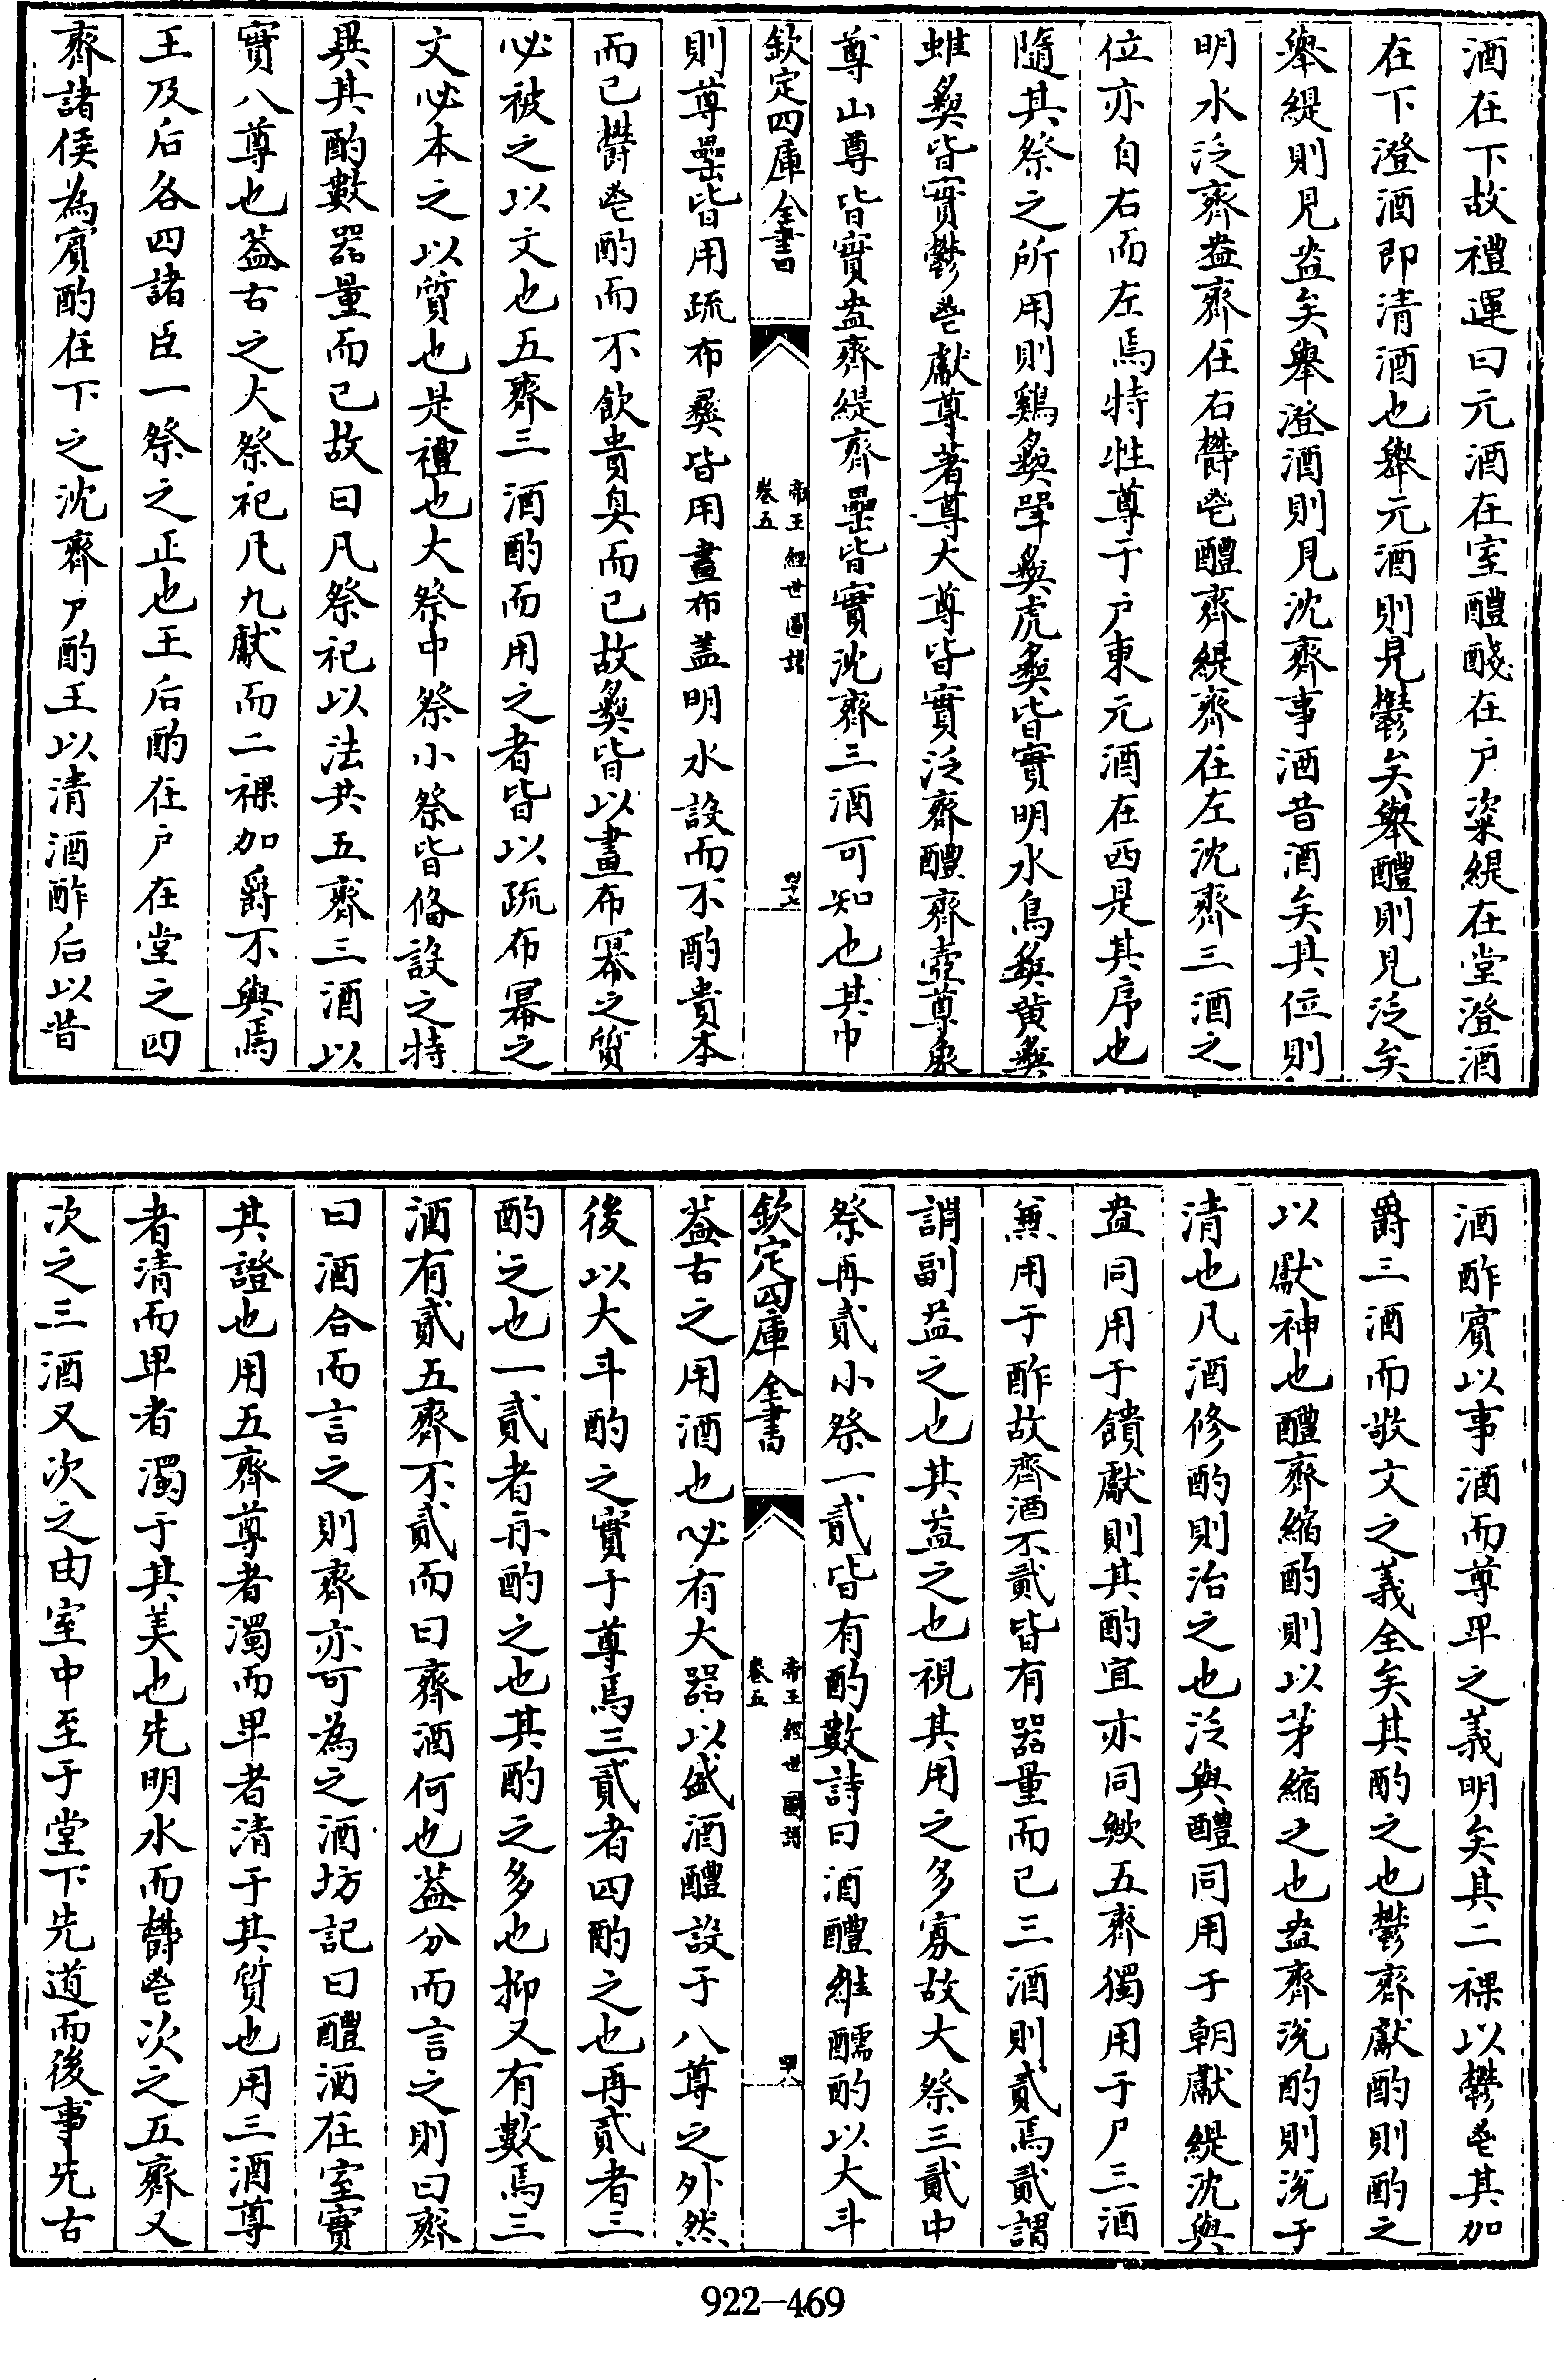 酒在下故禮運曰元酒在室醴醆在户粢緹在堂澄酒
在下澄酒即清酒也舉元酒則見鬱矣舉醴則見泛矣
舉緹則見盎矣舉澄酒則見沈齊事酒昔酒矣其位則
明水泛齊盎齊在右鬱鬯醴齊緹齊在左沈齊三酒之
位亦自右而左焉特牲尊于户東元酒在西是其序也
隨其祭之所用則鷄彝斝彝虎彝皆實明水鳥彝黄彝
蜼彝皆實鬱鬯獻尊著尊大尊皆實泛齊醴齊壺尊象
尊山尊皆實盎齊緹齊罍皆實沈齊三酒可知也其巾
欽定四庫全書
帝王經世圖譜
卷五
四十七
則尊罍皆用疏布彝皆用畫布盖明水設而不酌貴本
而已鬱鬯酌而不飲貴臭而已故彝皆以畫布冪之質
必被之以文也五齊三酒酌而用之者皆以疏布冪之
文必本之以質也是禮也大祭中祭小祭皆俻設之特
異其酌數器量而已故曰凡祭祀以法共五齊三酒以
實八尊也葢古之大祭祀凡九獻而二祼加爵不與焉
王及后各四諸臣一祭之正也王后酌在户在堂之四
齊諸侯為賔酌在下之沈齊尸酌王以清酒酢后以昔
酒酢賔以事酒而尊卑之義明矣其二祼以鬱鬯其加
爵三酒而敬文之義全矣其酌之也鬱齊獻酌則酌之
以獻神也醴齊縮酌則以茅縮之也盎齊涗酌則涗于
清也凡酒修酌則治之也泛與醴同用于朝獻緹沈與
盎同用于饋獻則其酌宜亦同歟五齊獨用于尸三酒
無用于酢故齊酒不貳皆有器量而已三酒則貳焉貳謂
謂副益之也其益之也視其用之多寡故大祭三貳中
祭再貳小祭一貳皆有酌數詩曰酒醴維醹酌以大斗
欽定四庫全書
帝王經世圖譜
卷五
四十八
葢古之用酒也必有大器以盛酒醴設于八尊之外然
後以大斗酌之實于尊焉三貳者四酌之也再貳者三
酌之也一貳者再酌之也其酌之多也抑又有數焉三
酒有貳五齊不貳而曰齊酒何也葢分而言之則曰齊
曰酒合而言之則齊亦可為之酒坊記曰醴酒在室實
其證也用五齊尊者濁而卑者清于其質也用三酒尊
者清而卑者濁于其美也先明水而鬱鬯次之五齊又
次之三酒又次之由室中至于堂下先道而後事先古
922-469